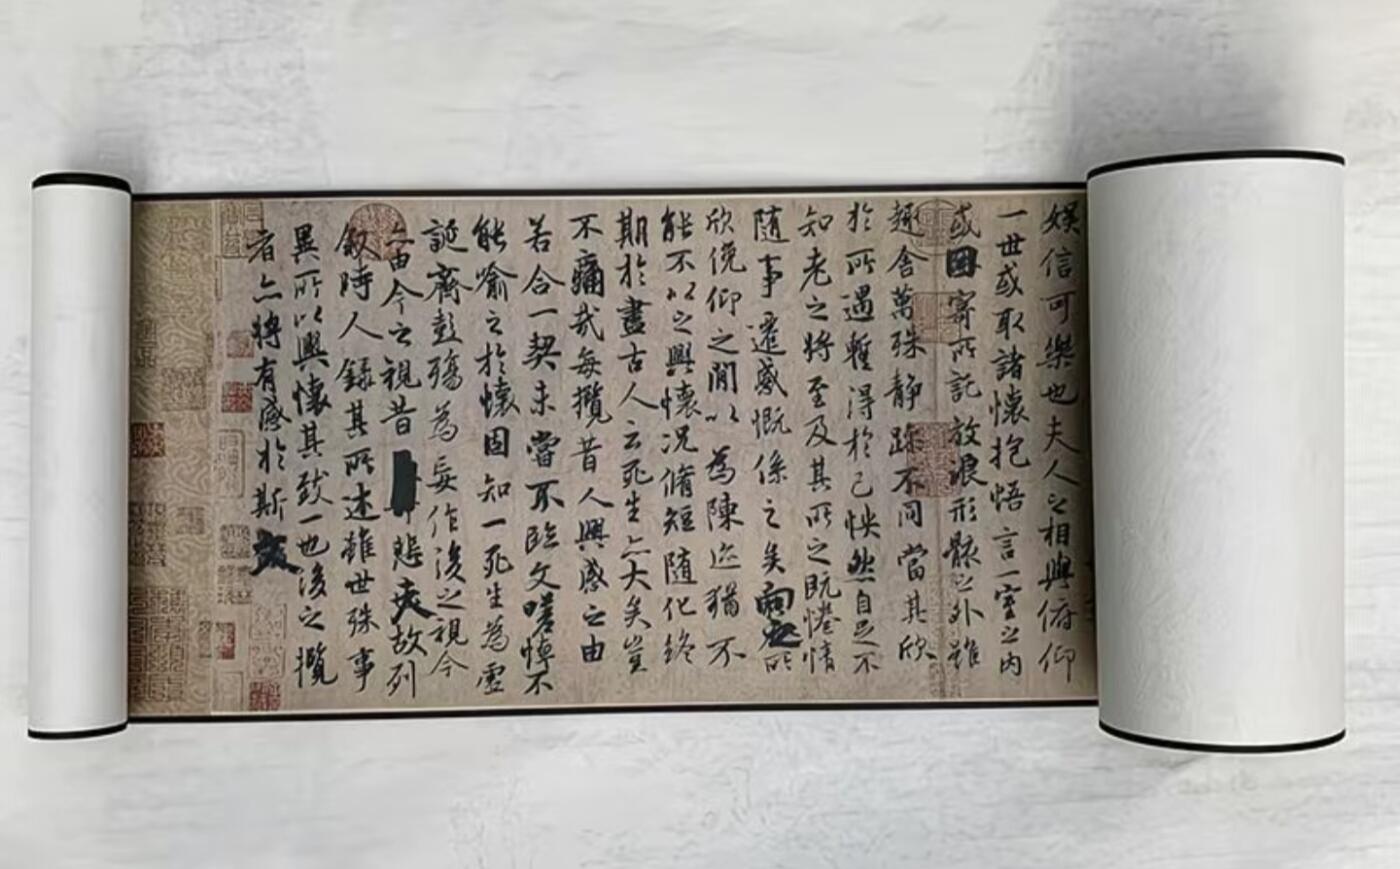 娛信可樂也夫人之相與俯仰
一世或取諸懷抱悟言一室之內
或因寄所託放浪形骸之外雖
趣舍萬殊静躁不同當其欣
於所遇暫得於己怏然自足不
知老之將至及其所之既惓情
隨事遷感慨係之矣向之所
欣俛仰之閒以為陳迹猶不
能不以之興懷況脩短隨化終
期於盡古人云死生亦大矣豈
不痛哉每攬昔人興感之由
若合一契未嘗不臨文嗟悼不
能喻之於懷固知一死生為虛
誕齊彭殤為妄作後之視今
亦由今之視昔悲夫故列
叙時人錄其所述雖世殊事
異所以興懷其致一也後之攬
者亦將有感於斯文